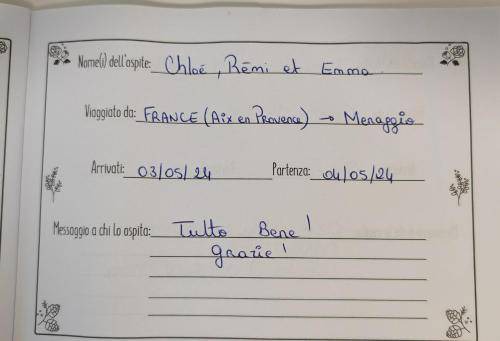 Nome(i) dell'ospite: Chloé, Rémi et Emma
Viaggiato da: FRANCE (Aix en Provence) → Menaggio
Arrivati: 03/05/24 Partenza: 04/05/24
Messaggio a chi lo ospita: Tutto Bene!
Grazie!